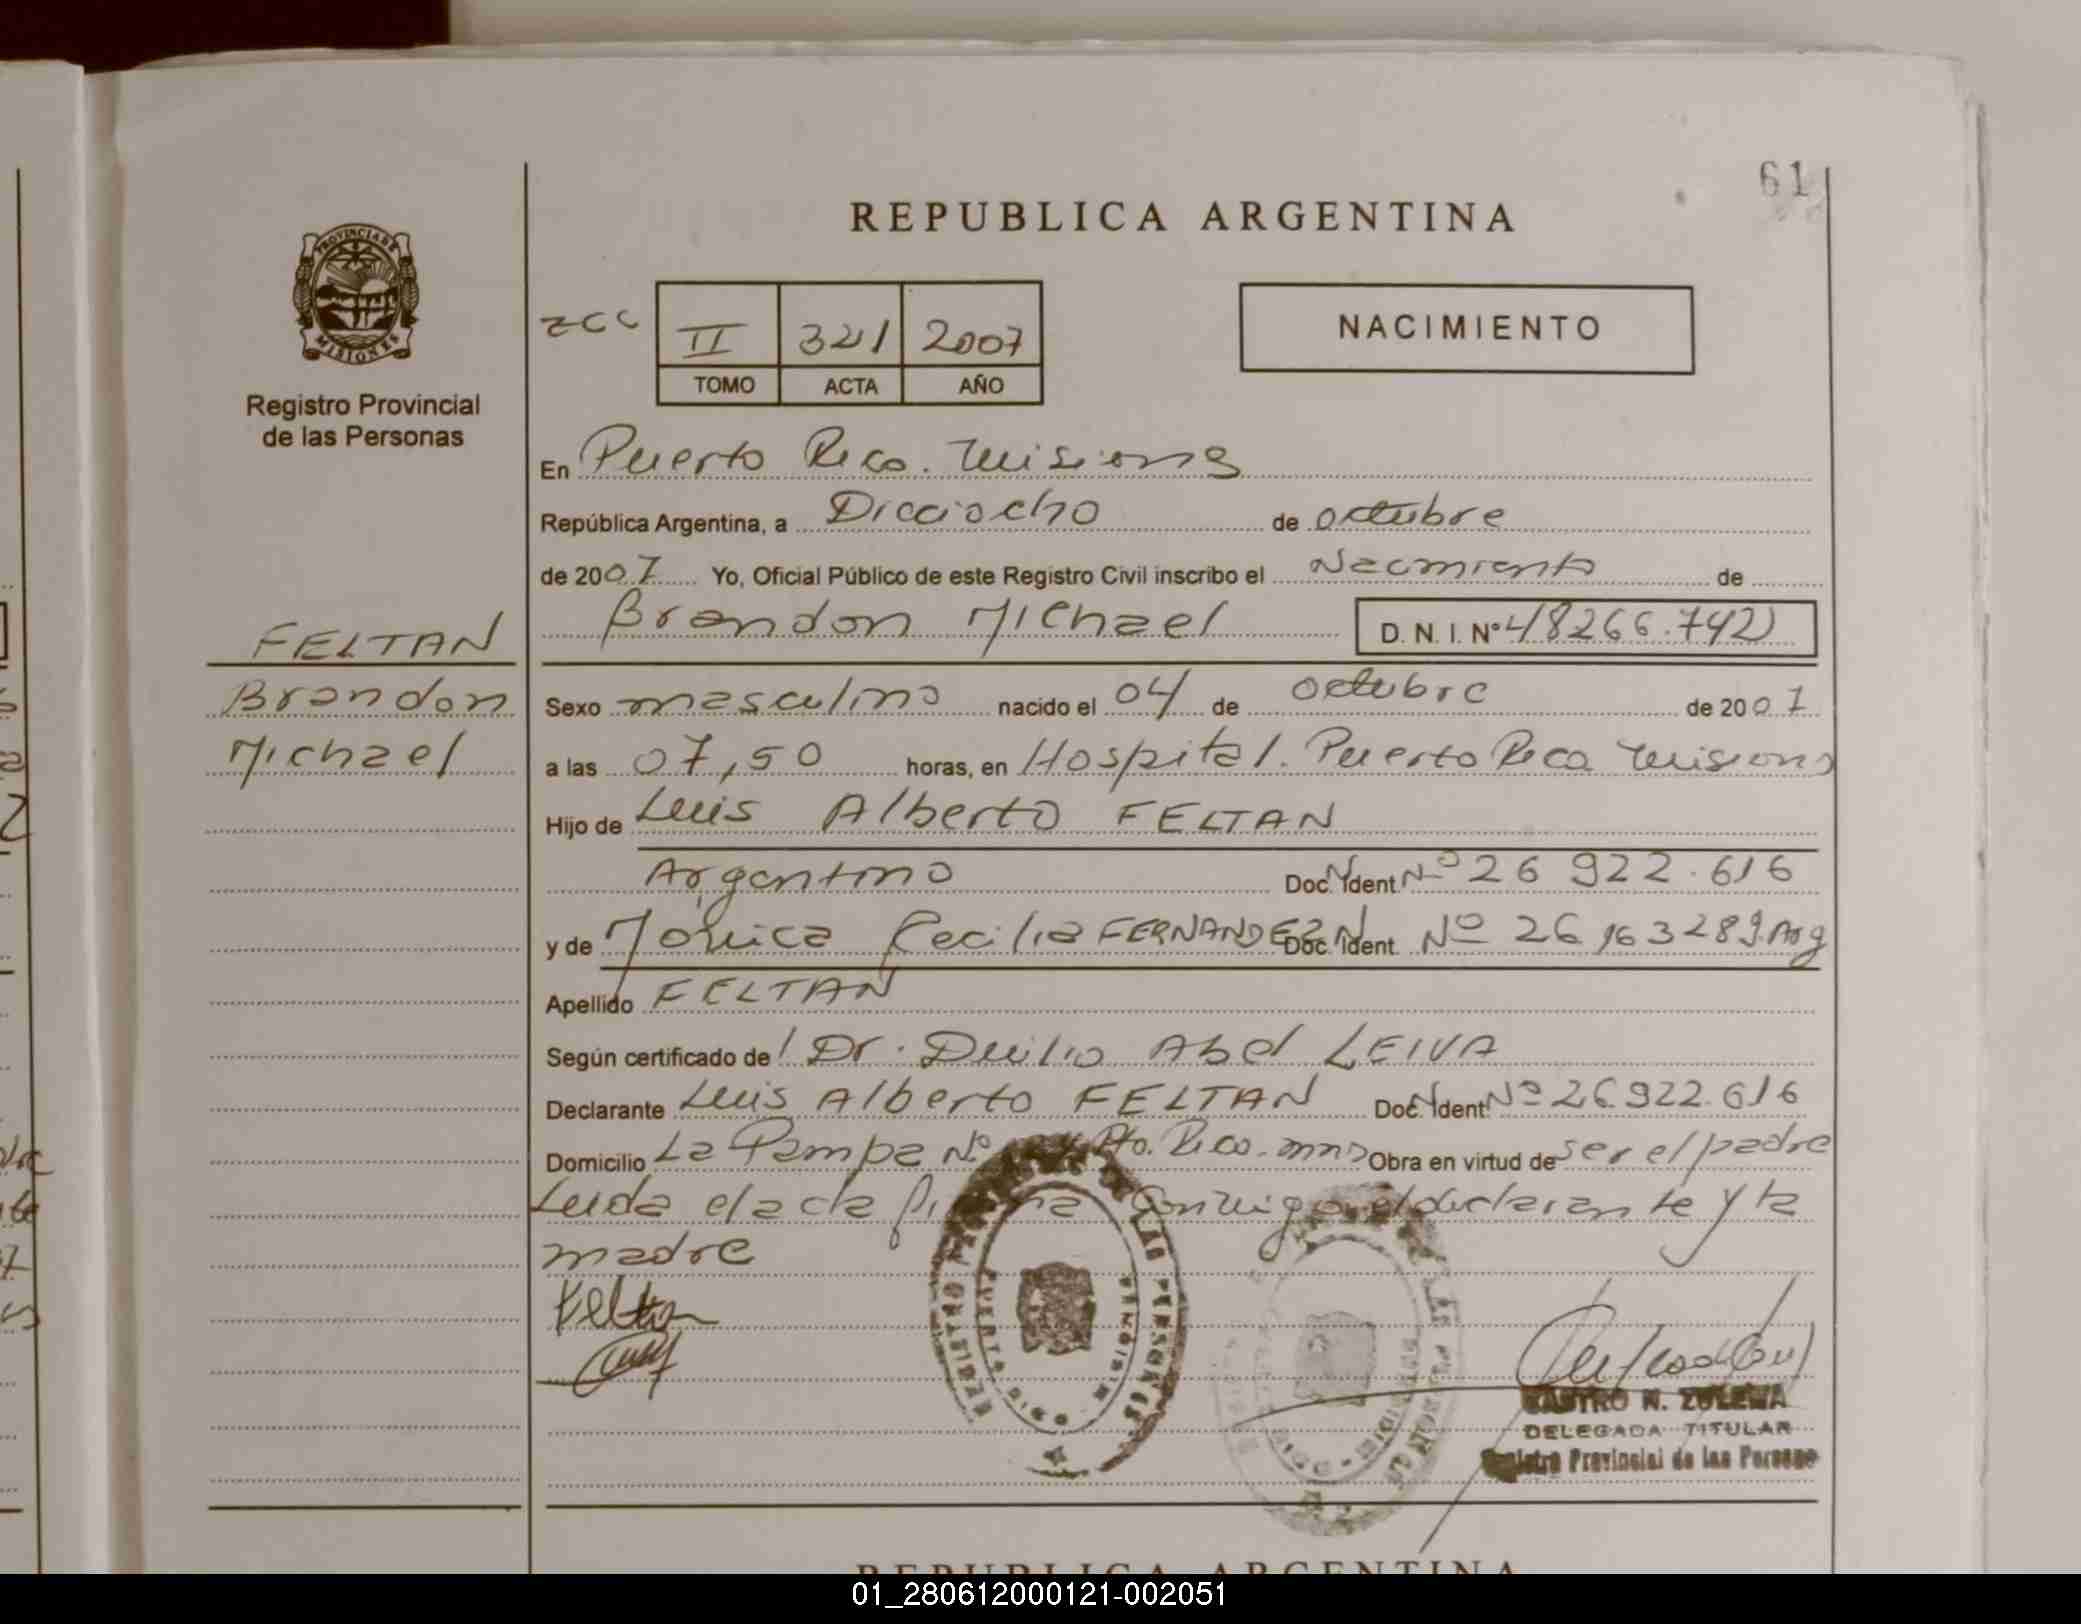 61
REPUBLICA ARGENTINA
PROVINCIA DE MISIONES
Registro Provincial
de las Personas
ZCC II 321 2007
TOMO ACTA AÑO
NACIMIENTO
En Puerto Rico. Misiones
República Argentina, a Dieciocho de octubre
de 2007 Yo, Oficial Público de este Registro Civil inscribo el Nacimiento de
Brandon Michael D. N. I. Nº 48266.742
FELTAN
Brandon
Michael
Sexo masculino nacido el 04 de octubre de 2007
a las 07,50 horas, en Hospital. Puerto Rico Misiones
Hijo de Luis Alberto FELTAN
Argentino Doc. Ident. Nº 26 922.616
y de Mónica Cecilia FERNANDEZ Doc. Ident. Nº 26163289. Arg
Apellido FELTAN
Según certificado del Dr. Duilio Abel LEIVA
Declarante Luis Alberto FELTAN Doc. Ident. Nº 26922.616
Domicilio La Pampa Nº Pto. Rico. mns Obra en virtud de ser el padre
Leida el acta firma conmigo el declarante y la
madre
Feltan
REGISTRO DE LAS PERSONAS
PUERTO RICO - MISIONES
CASTRO N. ZULEMA
DELEGADA TITULAR
Registro Provincial de las Personas
REPUBLICA ARGENTINA
01_280612000121-002051